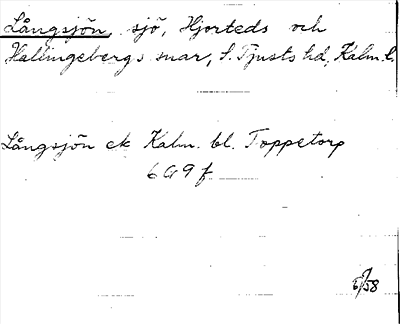 Långsjön, sjö, Hjorteds och
Hallingebergs snar, S. Tjusts hd, Kalm. l.
Långsjön ek Kalm. bl. Toppetorp
6G9f
5/58